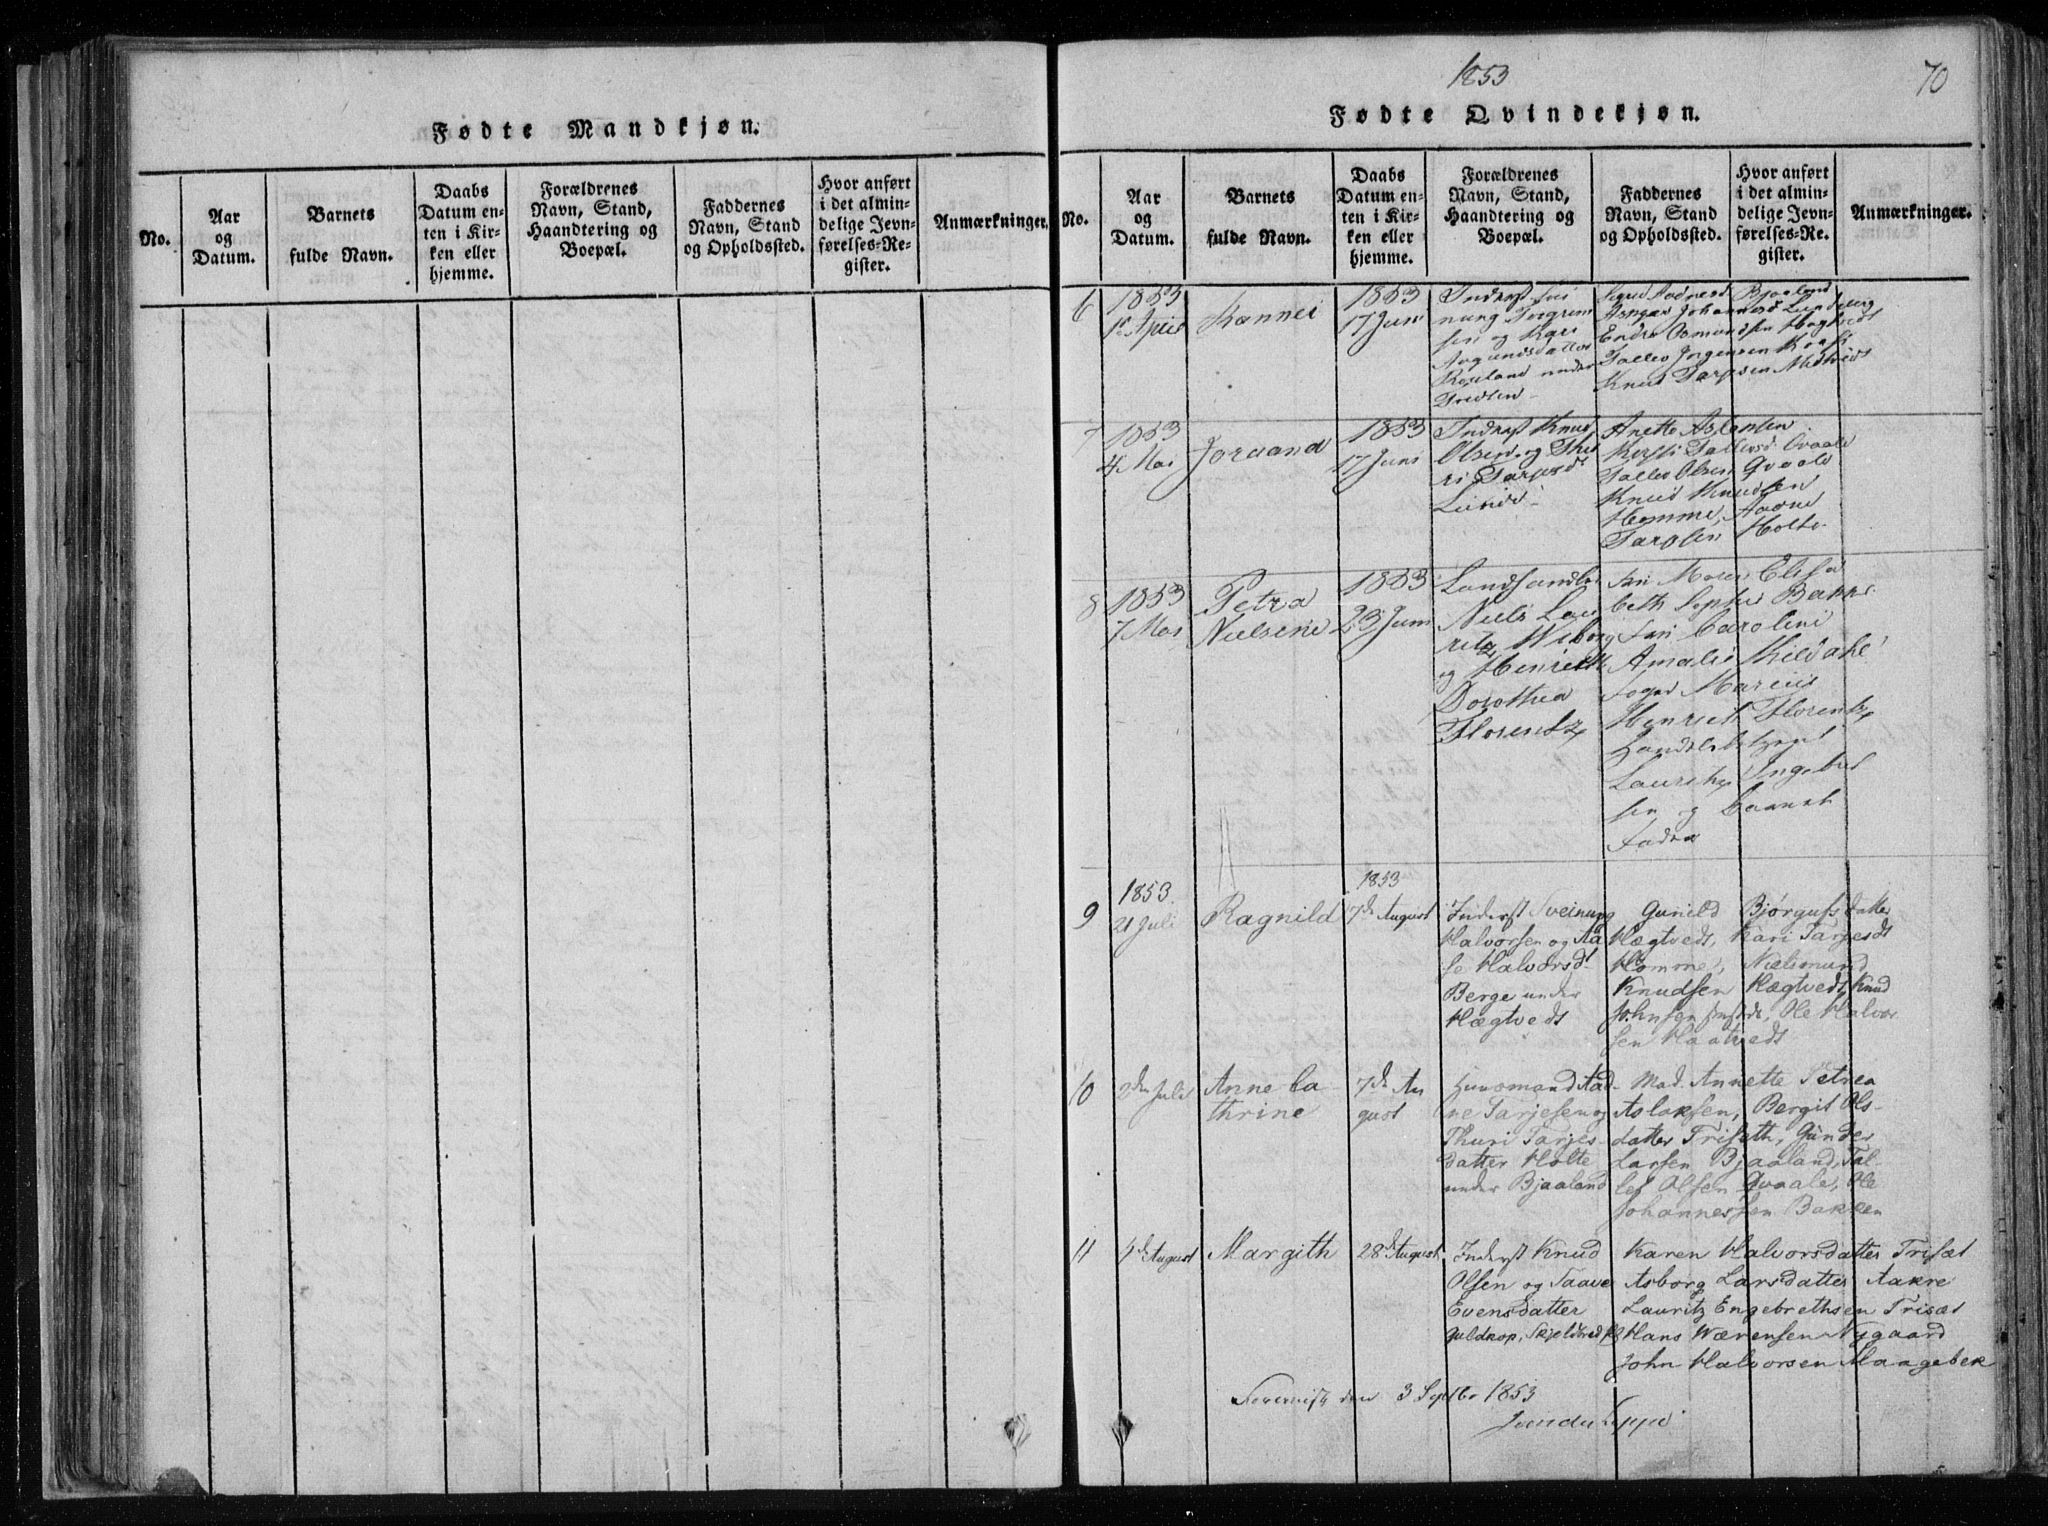 Fødte Mandkjøn.
No.
Aar
og
Datum.
Barnets
fulde Navn.
Daabs
Datum en-
ten i Kir-
ken eller
hjemme.
Forældrenes
Navn, Stand,
Haandtering og
Boepæl.
Faddernes
Navn, Stand
og Opholdssted.
Hvor anført
i det almin-
delige Jevn-
førelses-Re-
gister.
Anmærkninger.
1853
70
Fødte Qvindekjøn.
No.
Aar
og
Datum.
Barnets
fulde Navn.
Daabs
Datum en-
ten i Kir-
ken eller
hjemme.
Forældrenes
Navn, Stand,
Haandtering og
Boepæl.
Faddernes
Navn, Stand
og Opholdssted.
Hvor anført
i det almin-
delige Jevn-
førelses-Re-
gister.
Anmærkninger.
6
1853
April
Rannei
1853
17 Juni
og Kari
Roeland under
Bjaaland
Johannesd Lundeberg
Endre Osmundsen Hægtvedt
Tallev Jørgensen
Knud Tarjesen
7
1853
4 Mai
Joraand
1853
17 Juni
Inderst Knud
Olsen og Thu
ri Tarjesd
Lunde
Anette Aslaksen
Kirsti Tallevsd. Qvaale
Tallev Olsen Qvaale
Knud Knudsen
Homme, Aavne
Tarjesen Holte
8
1853
7 Mai
Petra
Nielsine
1853
23 Juni
Landhandler
Niels Lau
ritz Wiborg
og Henriette
Dorothea
Florentz
Elisa
beth Sophie Bakke
Caroline
Amalie Kildahl
Marius
Henrik Florentz
Lauritz Ingebret
sen og Barnets
Fader
9
1853
21 Juli
Ragnild
1853
7de August
Inderst Sveinung
Halvorsen og Aa
se Halvorsd
Berge under
Hægtvedt
Gunild Bjørgufsdatter
Hægtvedt, Kari Tarjesdt
Homme, Nielsmund
Knudsen Hægtvedt, Knud
Johnsen, Ole Halvor
sen Haatvedt
10
2den Juli
Anne Ca
thrine
7de Au
gust
Huusmand Aad-
ne Tarjesen og
Thuri Tarjes-
datter Holte
under Bjaaland
Mad. Annette Petrea
Aslaksen, Bergit Ols-
datter Trisæth, Gunder
Larsen Bjaaland, Tal-
lef Olsen Qvaale, Ole
Johannessen Bakken
11
4de August
Margith
28de August
Inderst Knud
Olsen og Taave
Evensdatter
Guldkop, Skjeldbred
Karen Halvorsdatter Trisæt
Asborg Larsdatter Aakre
Lauritz Engebrethsen Trisæt
Hans Wærensen Nygaard
John Halvorsen Maagebek
den 3 Septbr 1853